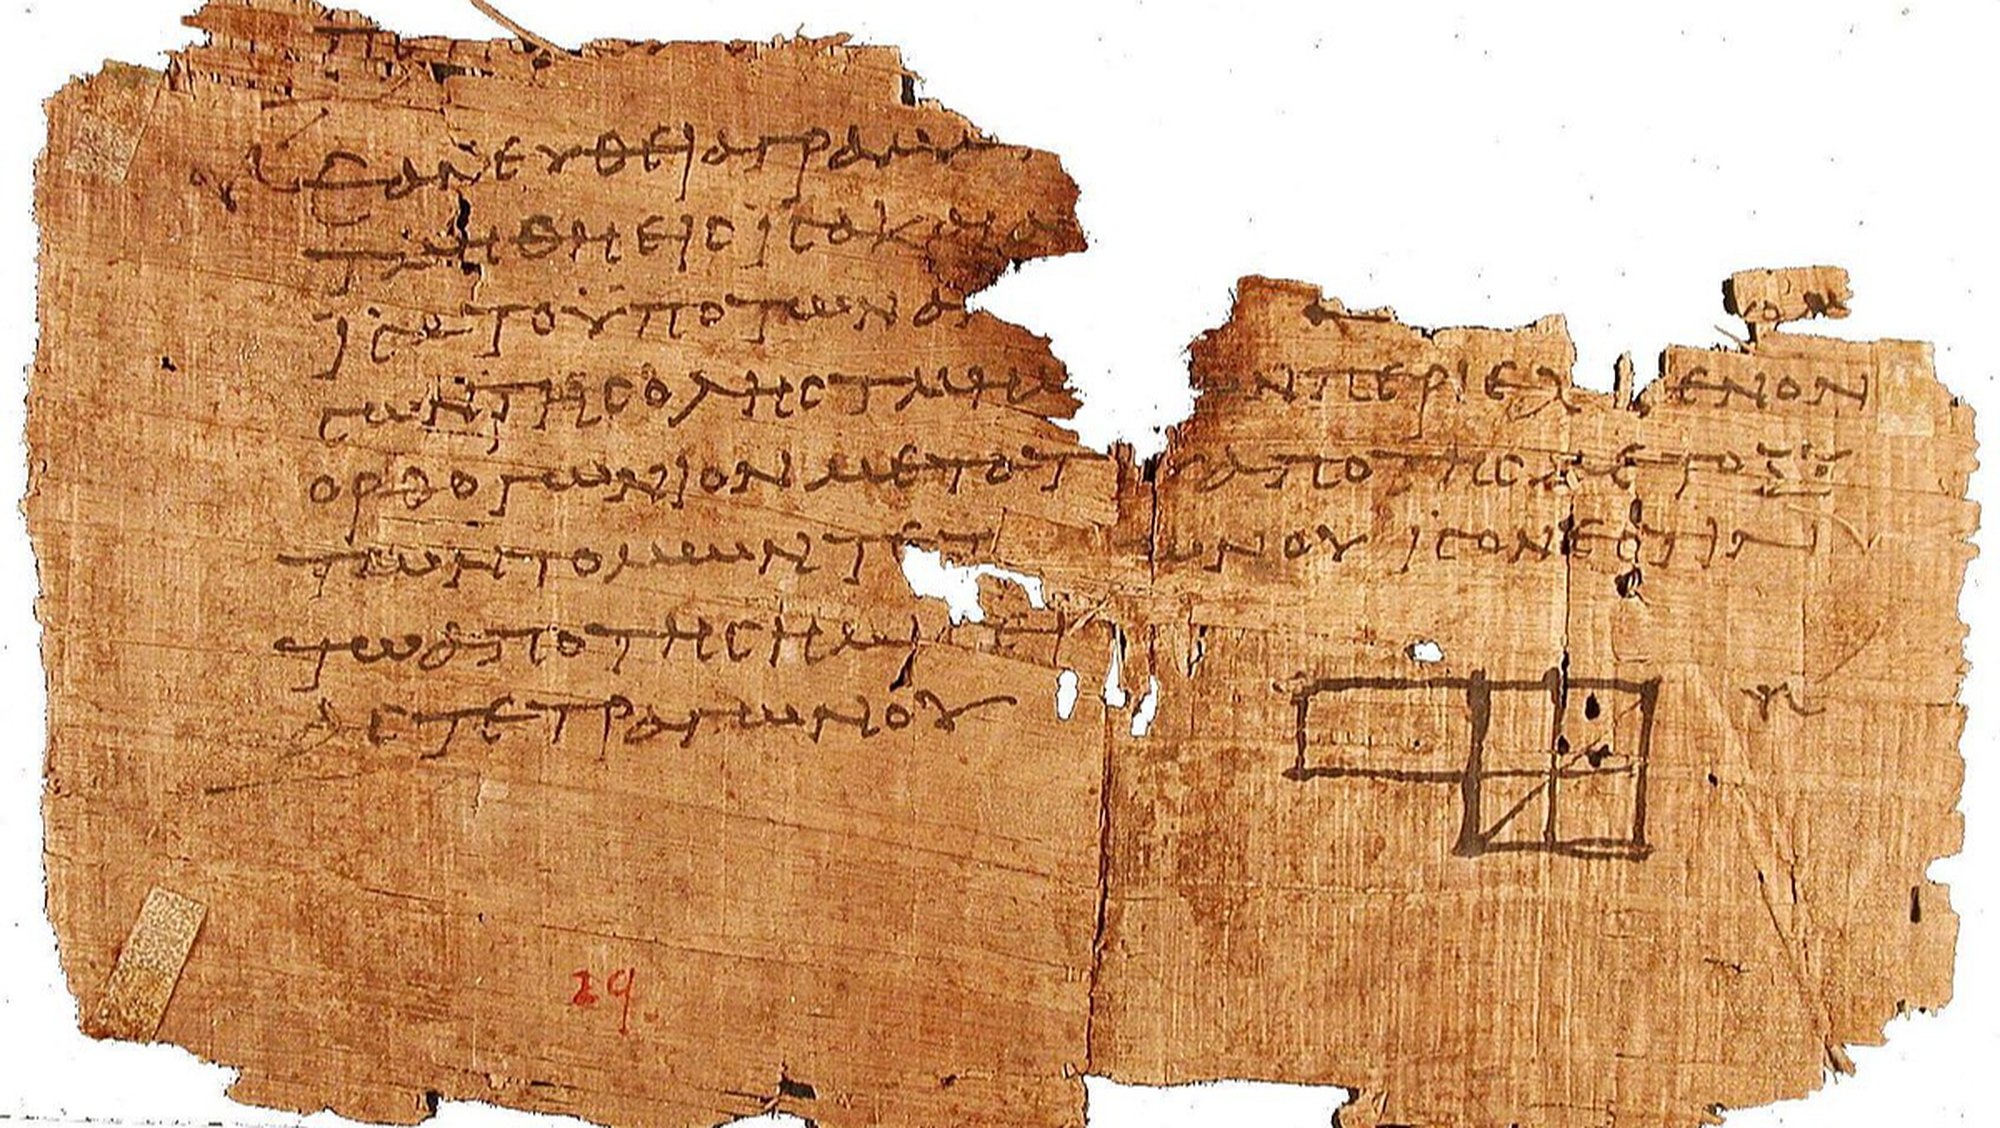 ΕΑΝ ΕΥΘΕΙΑ ΓΡΑΜΜ
ΤΜΗΘΗ ΕΙϹ ΙϹΑ ΚΑΙ Α
ΙϹΑ ΤΟ ΥΠΟ ΤΩΝ ΑΝ
ϹΩΝ ΤΗϹ ΟΛΗϹ ΤΜΗΜ ΩΝ ΠΕΡΙΕΧ ΕΝΟΝ
ΟΡΘΟΓΩΝΙΟΝ ΜΕ ΤΟΥ ΑΠΟ ΤΗϹ ΜΕΤΟΞΥ
ΤΩΝ ΤΟΜΩΝ ΤΕΤ ΩΝΟΥ ΙϹΟΝ ΕϹΤΙΝ
ΤΩ ΑΠΟ ΤΗϹ ΗΜΙϹΕΙ
ΑϹ ΤΕΤΡΑΓΩΝΟΥ
29.